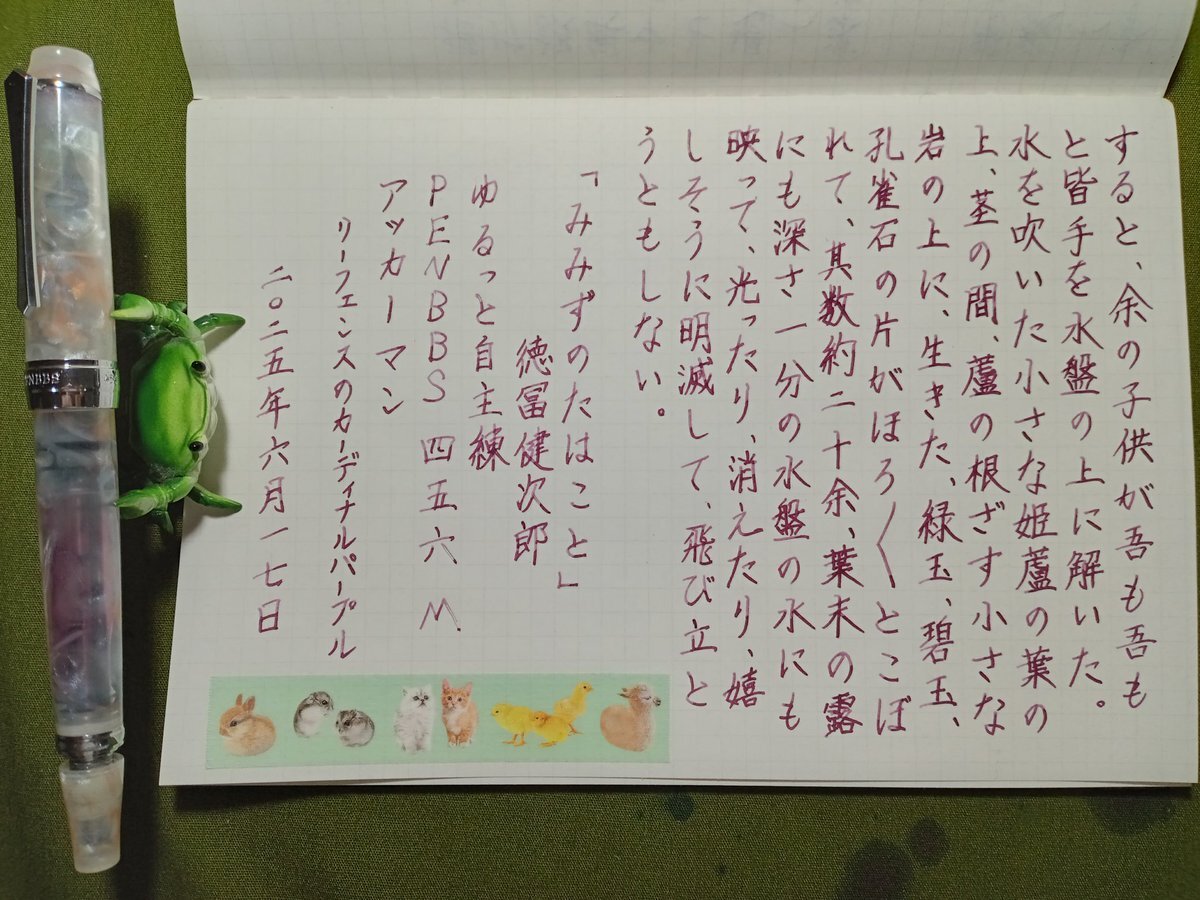 すると、余の子供が吾も吾も
と皆手を水盤の上に解いた。
水を吹いた小さな姫蘆の葉の
上、茎の間、蘆の根ざす小さな
岩の上に、生きた、緑玉、碧玉、
孔雀石の片がほろ〳〵とこぼ
れて、其数約二十余、葉末の露
にも深さ一分の水盤の水にも
映って、光ったり、消えたり、嬉
しそうに明滅して、飛び立と
うともしない。
「みみずのたはこと」
徳冨健次郎
ゆるっと自主練
PENBBS 四五六 M
アッカーマン
リーフェンスのカーディナルパープル
二〇二五年六月一七日